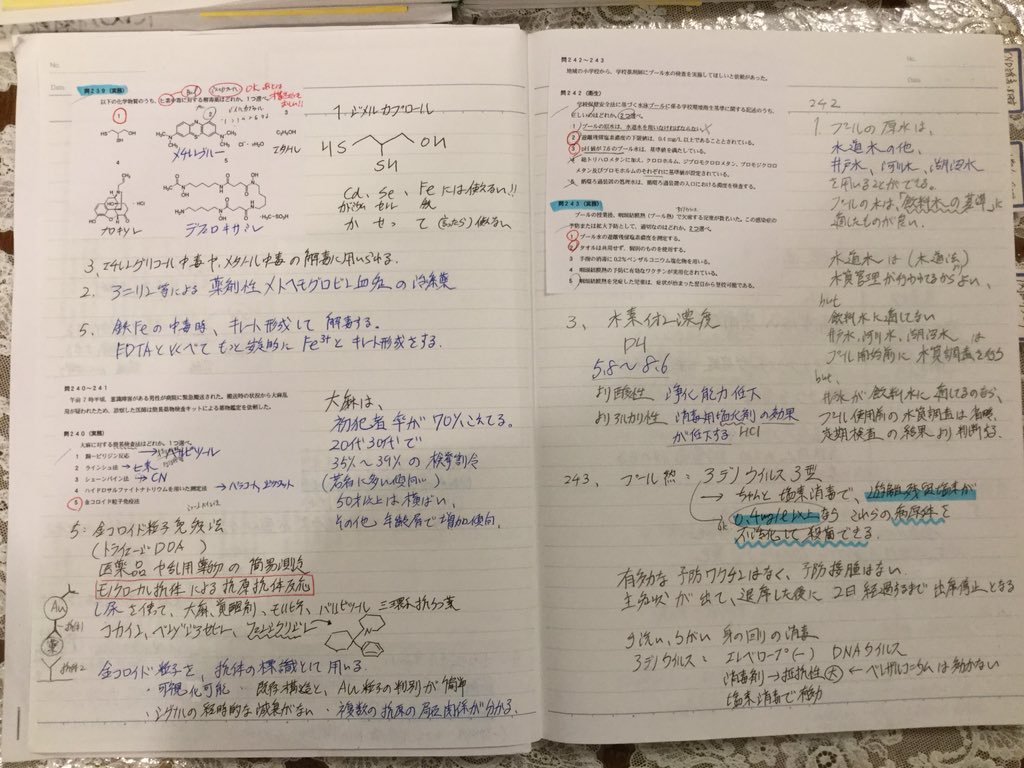 No.
Date
問239(実務)
以下の化学物質のうち、ヒ素中毒に対する解毒薬はどれか。1つ選べ。
1
2
3
4
5
C₂H₅OH
エタノール
メチレンブルー
Cl⁻ ・ H₂O
ナロキソン
デフェロキサミン
・CH₃-SO₃H
1. ジメルカプロール
HS
OH
SH
Cd、Se、Feには使えない!!
3. エチレングリコール中毒や、メタノール中毒の解毒に用いられる。
2. アニリン等による薬剤性メトヘモグロビン血症の治療薬
5. 鉄Feの中毒時、キレート形成して解毒する。
EDTAとくらべてもっと安定的にFe³⁺とキレート形成をする。
問240~241
午前7時半頃、意識障害がある男性が病院に緊急搬送された。搬送時の状況から大麻乱
用が疑われたため、診察した医師は簡易薬物検査キットによる薬物鑑定を依頼した。
問240(実務)
大麻に対する簡易検査法はどれか。1つ選べ。
1 銅-ピリジン反応 →バルビツール
2 ラインシュ法 →ヒ素
3 シェーンバイン法 →CN
4 ハイドロサルファイトナトリウムを用いた測定法 →パラコート、ジクワット
5 金コロイド粒子免疫法
大麻は、
初犯者率が70%こえてる。
20代30代で
35%~39%の検挙割合
(若者に多い傾向)
50才以上は横ばい、
その他年齢層で増加傾向。
5:金コロイド粒子免疫法
(トライエージDOA)
医薬品や乱用薬物の簡易測定
モノクローナル抗体による抗原抗体反応
し尿を使って、大麻、覚醒剤、モルヒネ、バルビツール 三環系抗うつ薬
コカイン、ベンゾジアゼピン、フェンシクリジン
Au
抗体1
薬
抗体2
金コロイド粒子を、抗体の標識として用いる。
・可視化可能 ・既存構造と、Au粒子の判別が簡単
・シグナルの経時的な減衰がない ・複数の抗原の局在関係が分かる。
問242~243
地域の小学校から、学校薬剤師にプール水の検査を実施してほしいと依頼があった。
問242(衛生)
学校保健安全法に基づく水泳プールに係る学校環境衛生基準に関する記述のうち、
正しいのはどれか。2つ選べ。
1 プールの原水は、水道水を用いなければならない。
2 遊離残留塩素濃度の下限値は、0.4 mg/L以上であることとされている。
3 pH値が7.6のプール水は、基準値を満たしている。
4 総トリハロメタンに加え、クロロホルム、ジブロモクロロメタン、ブロモジクロロ
メタン及びブロモホルムのそれぞれに基準値が設定されている。
5 循環ろ過装置の処理水は、循環ろ過装置の入口における濁度を検査する。
問243(実務)
プールの授業後、咽頭結膜熱(プール熱)で欠席する児童が数名いた。この感染症の
予防または拡大予防として、適切なのはどれか。2つ選べ。
1 プール水の遊離残留塩素濃度を測定する。
2 タオルは共用せず、個別のものを使用する。
3 手指の消毒に0.2%ベンザルコニウム塩化物を用いる。
4 咽頭結膜熱の予防に有効なワクチンが実用化されている。
5 咽頭結膜熱を発症した児童は、症状が治まった翌日から登校可能である。
242
1. プールの原水は、
水道水の他、
井戸水、河川水、湖沼水
を用いることができる。
プールの水は"飲料水の基準"に
適したものが良い。
水道水は(水道法)
水質管理が行われてるからよい、
but
飲料水に適してない
井戸水、河川水、湖沼水は
プール開始前に水質調査を行う
but,
井水が飲料水に適してるのなら、
プール使用前の水質調査は省略、
定期検査の結果より判断する。
3、水素イオン濃度
PH
5.8~8.6
より酸性 浄化能力低下
よりアルカリ性 消毒用塩素剤の効果
が低下する HCl
243、プール熱:アデノウイルス3型
→ちゃんと塩素消毒で、遊離残留塩素が
0.4mg/L以上ならこれらの病原体を
不活化して殺菌できる。
有効な予防ワクチンはなく、予防接種はない。
主症状が出て、退席した後に2日経過するまで出席停止となる
手洗い、うがい 身の回りの消毒
アデノウイルス:エンベロープ(-) DNAウイルス
消毒剤→抵抗性大 ←ベンザルコニウムは効かない
塩素消毒で有効